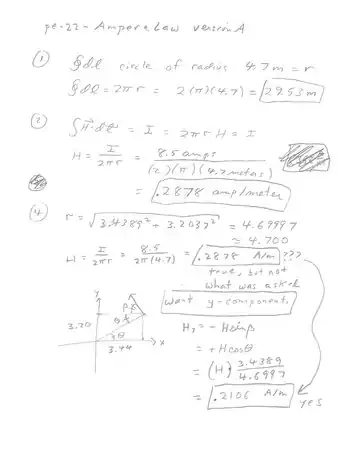 pe-23- Ampere Law version A
① ∮dl circle of radius 4.7m = r
∮dl = 2πr = 2(π)(4.7) = 29.53 m
② ∫H⃗·dl⃗ = I = 2πr H = I
H = I/2πr = 8.5 amps/(2)(π)(4.7 meters)
= .2878 amp/meter
④ r = √3.4389² + 3.2037² = 4.69997
≈ 4.700
H = I/2πr = 8.5/2π(4.7) = .2878 A/m ???
true, but not
what was asked
want y-component.
y
3.20
θ
x
3.44
= +H cosθ
= (H) 3.4389/4.6997
= .2106 A/m yes